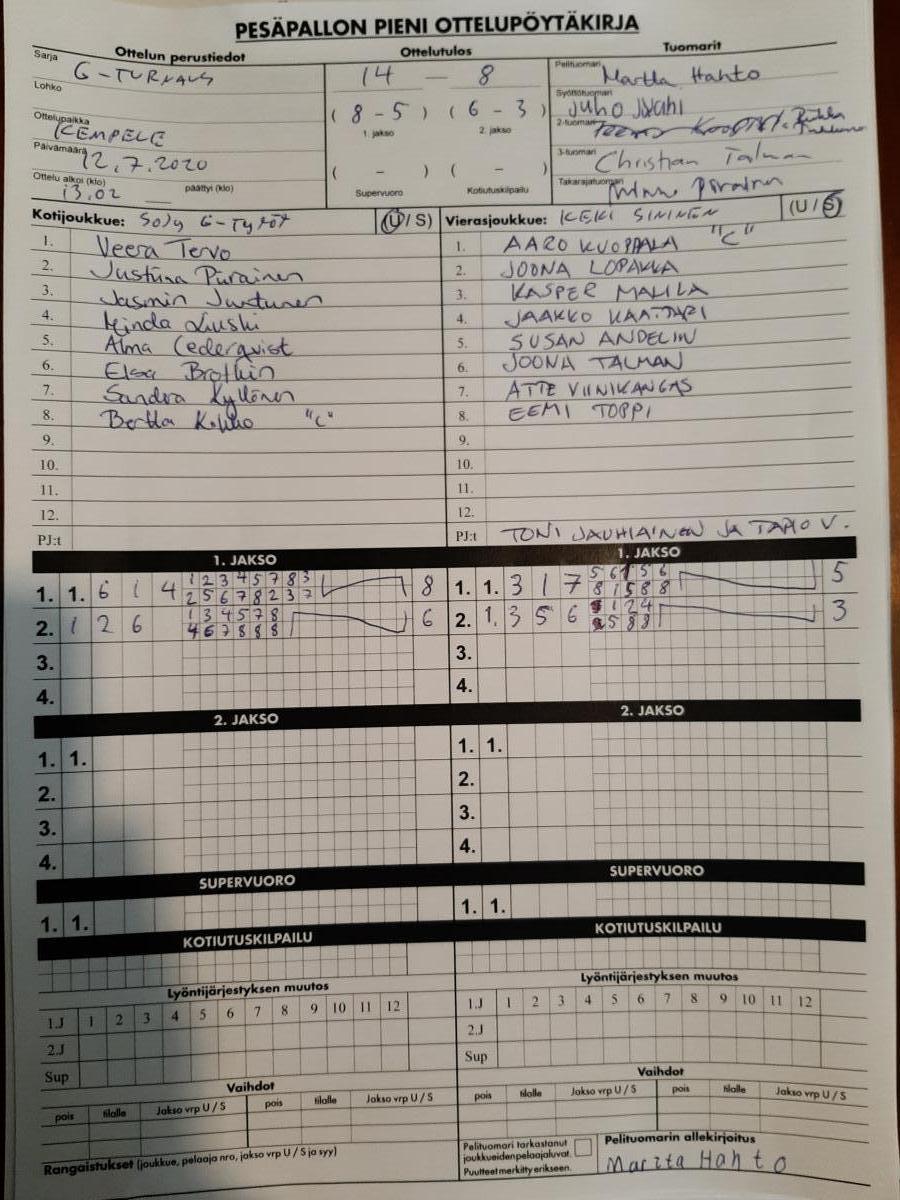 PESÄPALLON PIENI OTTELUPÖYTÄKIRJA
Ottelun perustiedot
Sarja G-TURNAUS
Lohko
Ottelupaikka KEMPELE
Päivämäärä 12.7.2020
Ottelu alkoi (klo) 13.02 päättyi (klo)
Ottelutulos
14 — 8
(8-5) (6-3)
1. jakso 2. jakso
( - ) ( - )
Supervuoro Kotiutuskilpailu
Tuomarit
Pelituomari Martta Hahto
Syöttötuomari Juho
2-tuomari
3-tuomari Christian Talman
Takarajatuomari
Kotijoukkue: SoJy G-Tytöt (U/S)
1. Veera Tervo
2. Justiina Piirainen
3. Jasmin Juntunen
4. Minda
5. Alma Cederqvist
6. Elsa
7. Sandra Kyllönen
8. Bertta "C"
9.
10.
11.
12.
PJ:t
Vierasjoukkue: KEKI SININEN (U/S)
1. AARO KUOPPALA "C"
2. JOONA LOPAKKA
3. KASPER MALILA
4. JAAKKO KAATTARI
5. SUSAN ANDELIN
6. JOONA TALMAN
7. ATTE VIINIKANGAS
8. EEMI TOPPI
9.
10.
11.
12.
PJ:t TONI JAUHIAINEN JA TAPIO V.
1. JAKSO
1. 1. 6 1 4 1 2 3 4 5 7 8 3 8
2 5 6 7 8 2 3 7
2. 1 2 6 1 3 4 5 7 8 6
4 6 7 8 8 8
3.
4.
1. JAKSO
1. 1. 3 1 7 5 6 1 5 6 5
8 1 5 8 8
2. 1. 3 5 6 1 2 4 3
5 8 8
3.
4.
2. JAKSO
1. 1.
2.
3.
4.
2. JAKSO
1. 1.
2.
3.
4.
SUPERVUORO
1. 1.
SUPERVUORO
1. 1.
KOTIUTUSKILPAILU
KOTIUTUSKILPAILU
Lyöntijärjestyksen muutos
1.J 1 2 3 4 5 6 7 8 9 10 11 12
2.J
Sup
Lyöntijärjestyksen muutos
1.J 1 2 3 4 5 6 7 8 9 10 11 12
2.J
Sup
Vaihdot
pois tilalle Jakso vrp U / S pois tilalle Jakso vrp U / S
Vaihdot
pois tilalle Jakso vrp U / S pois tilalle Jakso vrp U / S
Rangaistukset (joukkue, pelaaja nro, jakso vrp U / S ja syy)
Pelituomari tarkastanut
joukkueidenpelaajaluvat.
Puutteet merkitty erikseen.
Pelituomarin allekirjoitus
Marita Hahto